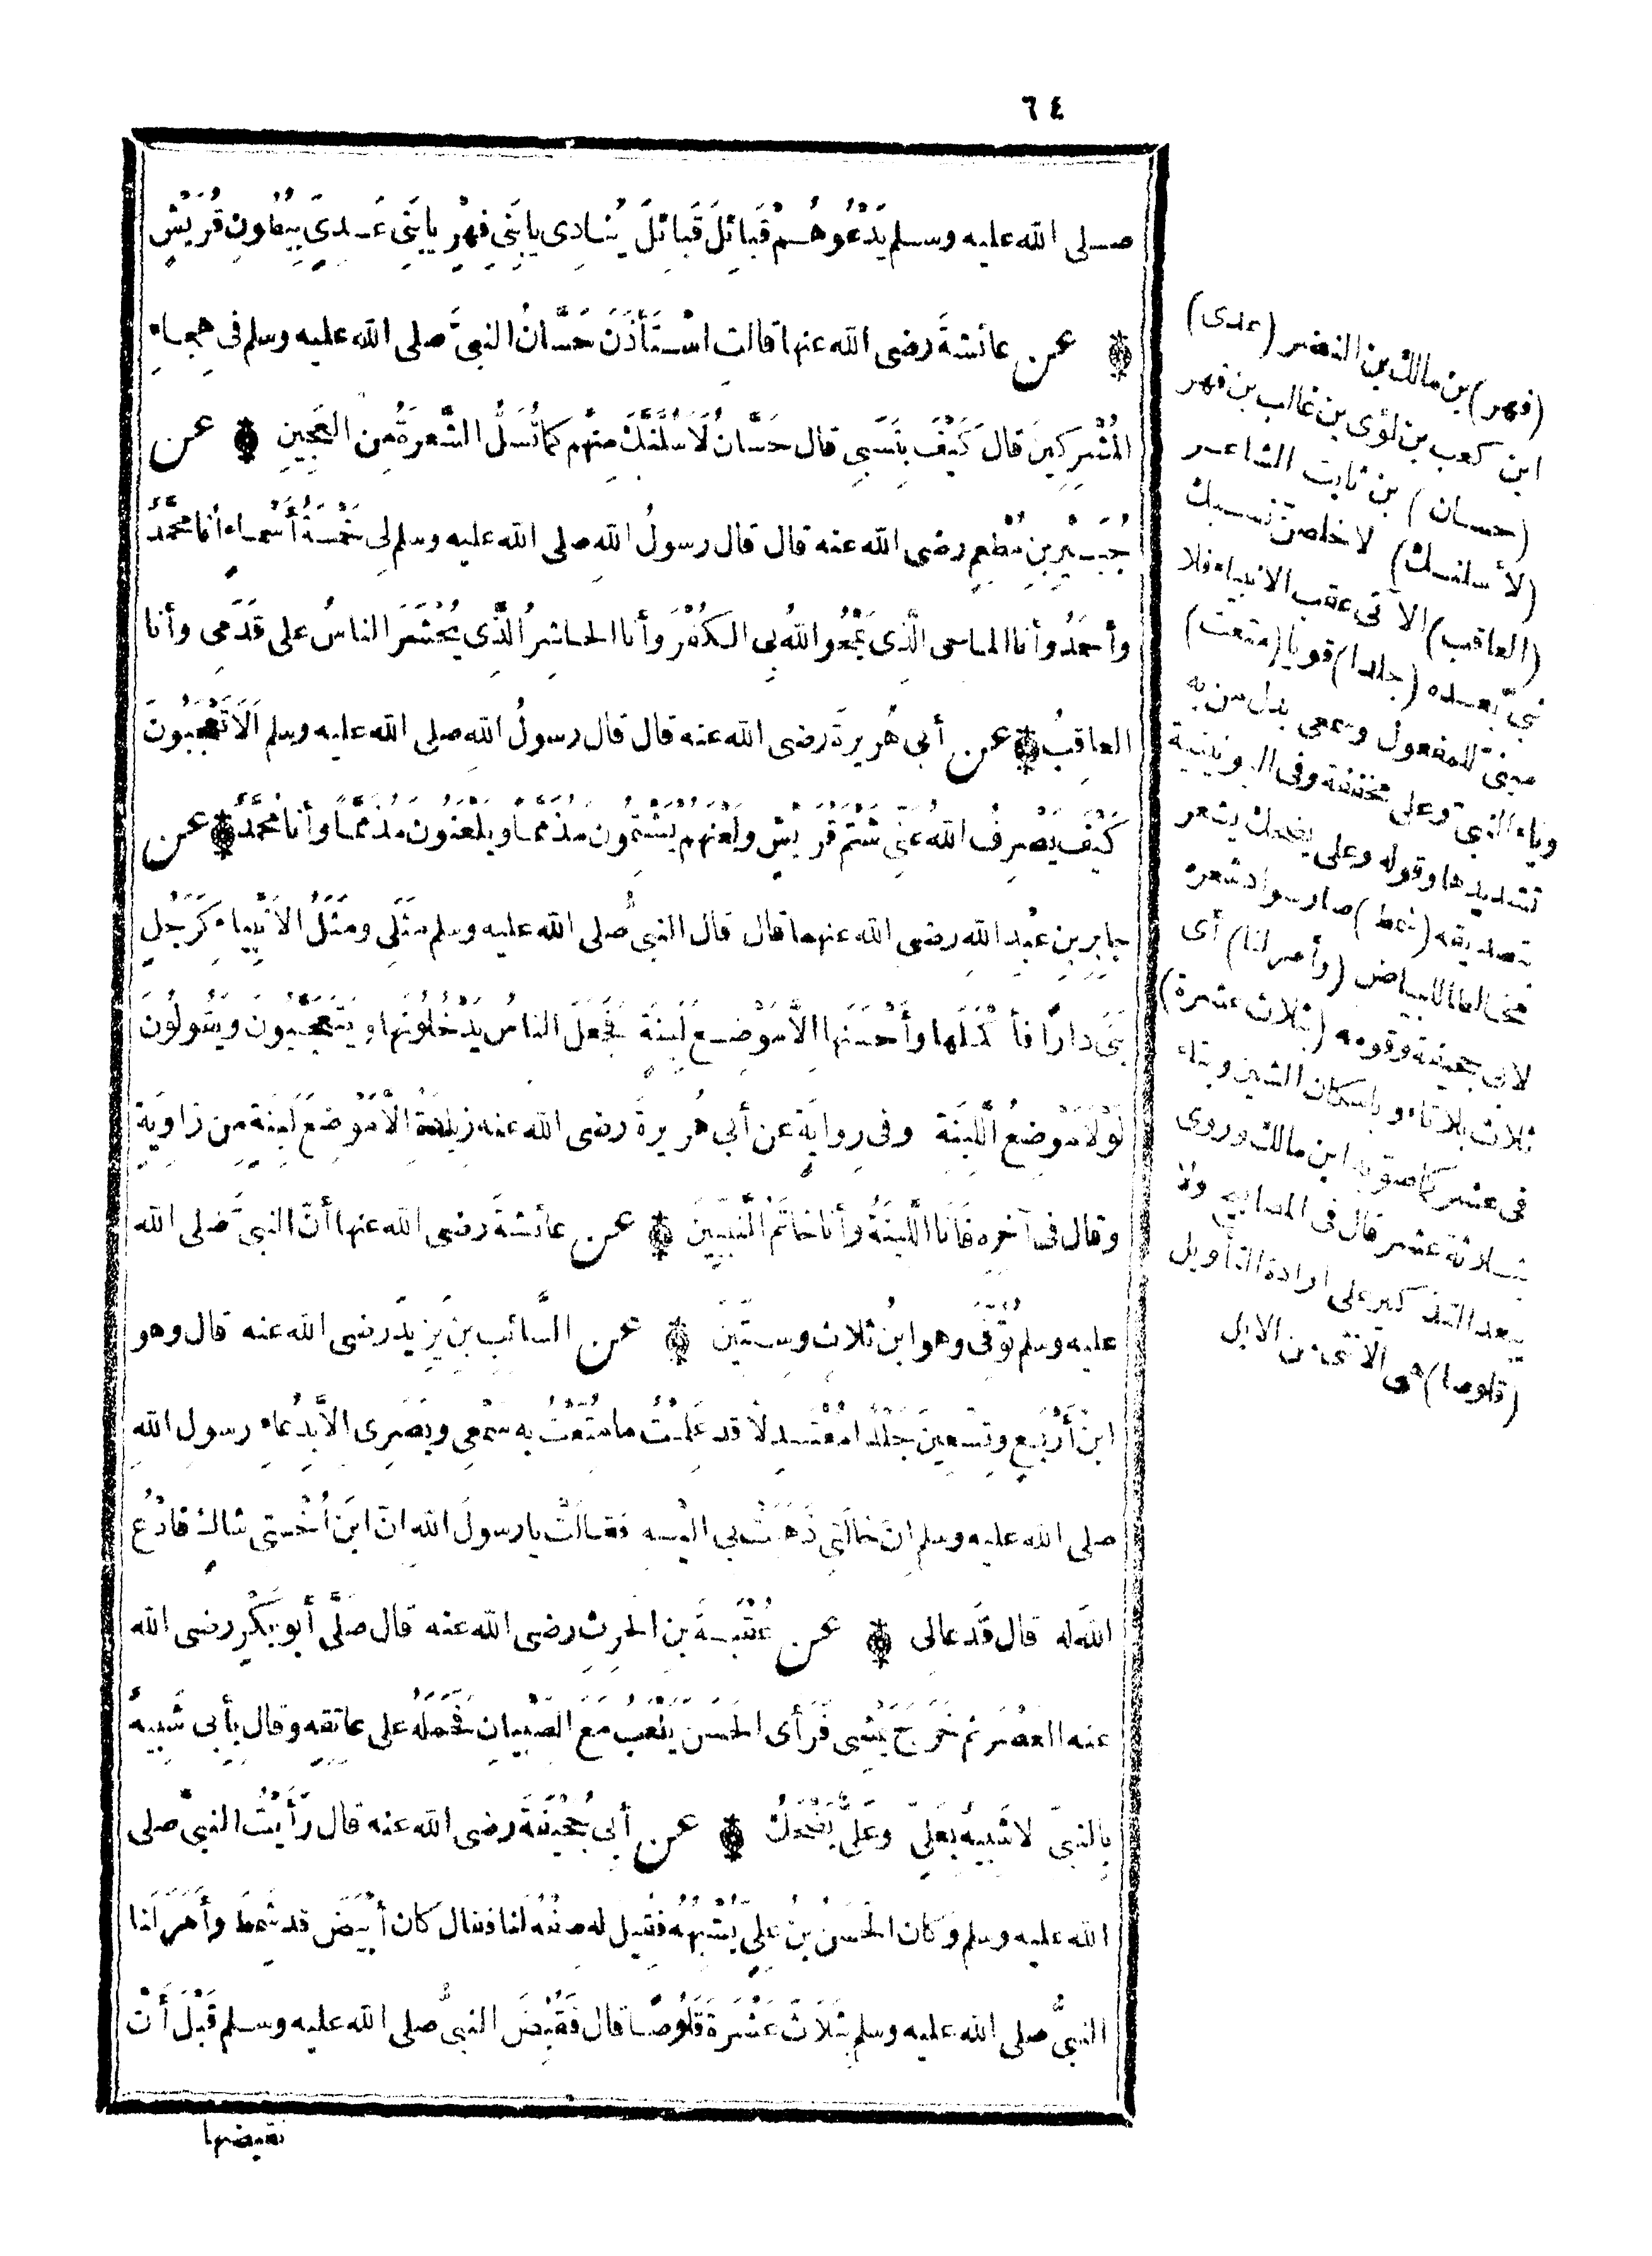 ٦٤
صلى الله عليه وسلم يَدْعُوهُمْ قَبائِلَ قَبائِلَ يُنادِى يا بَنِى فِهْرٍ يا بَنِى عَدِىّ بِبُطُونِ قُرَيْشٍ
عن عائشةَ رضى الله عنها قالت اسْتَأْذَنَ حَسَّانُ النبىَّ صلى الله عليه وسلم فى هِجاءِ
المُشْرِكِينَ قال كَيْفَ بِنَسَبِى قال حَسَّانُ لَأَسُلَّنَّكَ مِنْهُم كما تُسَلُّ الشَّعرةُ مِنَ العَجِينِ عن
جُبَيْرِ بنِ مُطْعِمٍ رضى الله عنه قال قال رسولُ اللهِ صلى الله عليه وسلم لِى خَمْسَةُ أَسْماءٍ أنا مُحَمَّدٌ
وأحمَدُ وأنا الماحى الَّذِى يَمْحُو اللهُ بِى الكُفْرَ وأنا الحاشِرُ الَّذِى يُحْشَرُ الناسُ على قَدَمِى وأنا
العاقِبُ عن أبى هُريرةَ رضى الله عنه قال قال رسولُ اللهِ صلى الله عليه وسلم أَلَا تَعْجَبُونَ
كَيْفَ يَصْرِفُ اللهُ عَنِّى شَتْمَ قُرَيْشٍ ولَعْنَهُم يَشْتِمُونَ مُذَمَّمًا ويَلْعَنُونَ مُذَمَّمًا وأنا مُحَمَّدٌ عن
جابِرِ بنِ عبْدِ اللهِ رضى الله عنهما قال قال النبىُّ صلى الله عليه وسلم مَثَلِى ومَثَلُ الأَنْبِياءِ كَرَجُلٍ
بَنَى دارًا فأكْمَلَها وأَحْسَنَها الَّا مَوْضِعَ لَبِنَةٍ فَجَعَلَ الناسُ يَدْخُلُونَها ويَتَعَجَّبُونَ ويَقُولُونَ
لَوْلَا مَوْضِعُ اللَّبِنَةِ وفى رِوايَةٍ عن أبى هُريرةَ رضى الله عنه زيادةُ الَّا مَوْضِعَ لَبِنَةٍ مِن زاوِيَةٍ
وقال فى آخِرِه فَأَنَا اللَّبِنَةُ وأنا خاتَمُ النَّبِيِّينَ عن عائشةَ رضى الله عنها أنّ النبىَّ صلى الله
عليه وسلم تُوُفِّىَ وهو ابنُ ثلاثٍ وسِتِّينَ عن السَّائِبِ بنِ يَزِيدَ رضى الله عنه قال وهو
ابنُ أَرْبَعٍ وتِسْعِينَ جَلْدًا مُعْتَدِلًا قد عَلِمْتُ ما مُتِّعْتُ به سَمْعِى وبَصَرِى الَّا بِدُعاءِ رسولِ اللهِ
صلى الله عليه وسلم انّ خالَتِى ذَهَبَتْ بى اليْه فقالَتْ يا رسولَ الله انّ ابنَ أُخْتِى شاكٍ فادْعُ
اللهَ له قال فَدَعا لى عن عُقْبَةَ بنِ الحرِثِ رضى الله عنه قال صَلَّى أبو بَكْرٍ رضى الله
عنه العَصْرَ ثم خَرَجَ يَمْشِى فَرَأى الحَسَنَ يَلْعَبُ مَعَ الصِّبْيانِ فَحَمَلَهُ على عاتِقِهِ وقال بِأَبِى شَبِيهٌ
بِالنبىّ لا شَبِيهٌ بِعَلِىّ وعَلِىٌّ يَضْحَكُ عن أبى جُحَيْفَةَ رضى الله عنه قال رَأَيْتُ النبىَّ صلى
الله عليه وسلم وكان الحَسَنُ بنُ عَلِىٍّ يُشْبِهُهُ فقِيلَ له صِفْهُ لنا فقال كان أبْيَضَ قد شَمِطَ وأَمَرَ لَنا
النبىُّ صلى الله عليه وسلم بِثَلاثَ عَشْرَةَ قَلُوصًا قال فَقُبِضَ النبىُّ صلى الله عليه وسلم قَبْلَ أَنْ
نقبضها
(فهر) بن مالك بن النضر (عدى)
ابن كعب بن لؤى بن غالب بن فهر
(حسان) بن ثابت الشاعر
(لأسلنك) لأخلصن نسبك
(العاقب) الآتى عقب الانبياء فلا
نبىّ بعده (جلدا) قويا (متعت)
مبنىّ للمفعول وسمعى بدل من به
وياء النبىّ وعلى مخففة وفى اليونينية
تشديدها وقوله وعلى يضحك يشعر
بتصديقه (شمط) صار سواد شعره
مخالطا لبياض (وأمر لنا) أى
لابى جحيفة وقومه (ثلاث عشرة)
ثلاث بلا تاء وباسكان الشين وبتاء
فى عشر كما صوّبه ابن مالك وروى
بثلاثة عشر قال فى المصابيح ولا
يبعد التذكير على ارادة التأويل
(قلوصا) هى الانثى من الابل